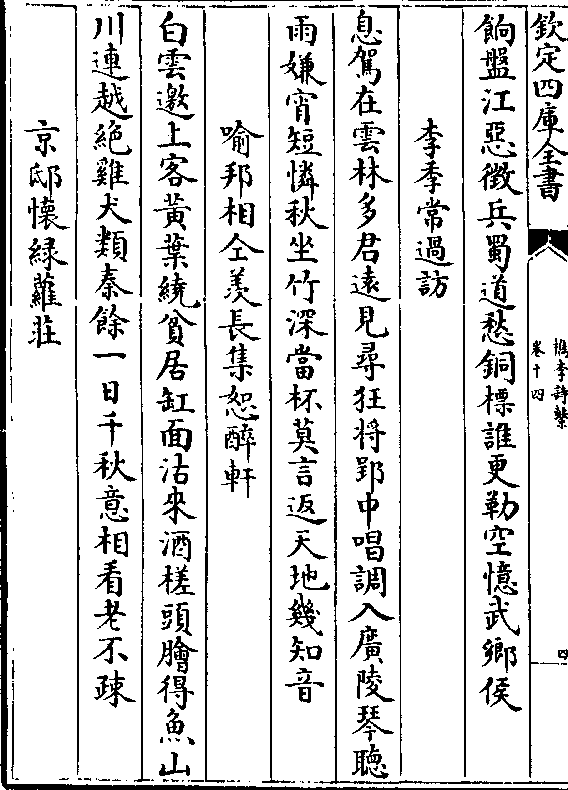 欽定四庫全書
檇李詩繫
卷十四
四
餉盤江惡徴兵蜀道愁銅標誰更勒空憶武鄉侯
李季常過訪
息駕在雲林多君逺見尋狂将郢中唱調入廣陵琴聽
雨嫌宵短憐秋坐竹深當杯莫言返天地幾知音
喻邦相仝羡長集恕醉軒
白雲邀上客黄葉繞貧居缸面沽來酒槎頭膾得魚山
川連越絶雞犬類秦餘一日千秋意相看老不疎
京邸懷緑蘿莊